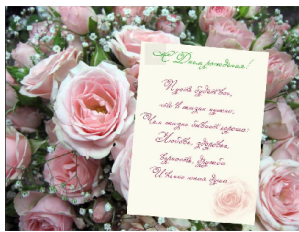 С Днем рождения!
Пусть будет все,
что в жизни нужно,
Чем жизнь бывает хороша:
Любовь, здоровье,
верность, дружба
И вечно юная душа.